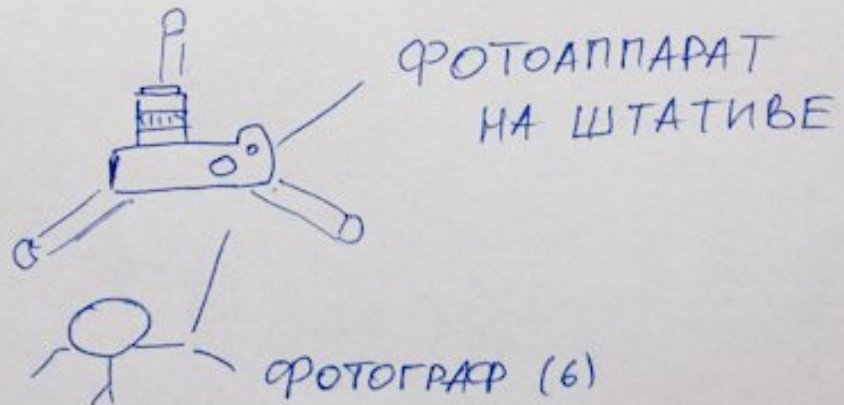 ФОТОАППАРАТ
НА ШТАТИВЕ
ФОТОГРАФ (6)